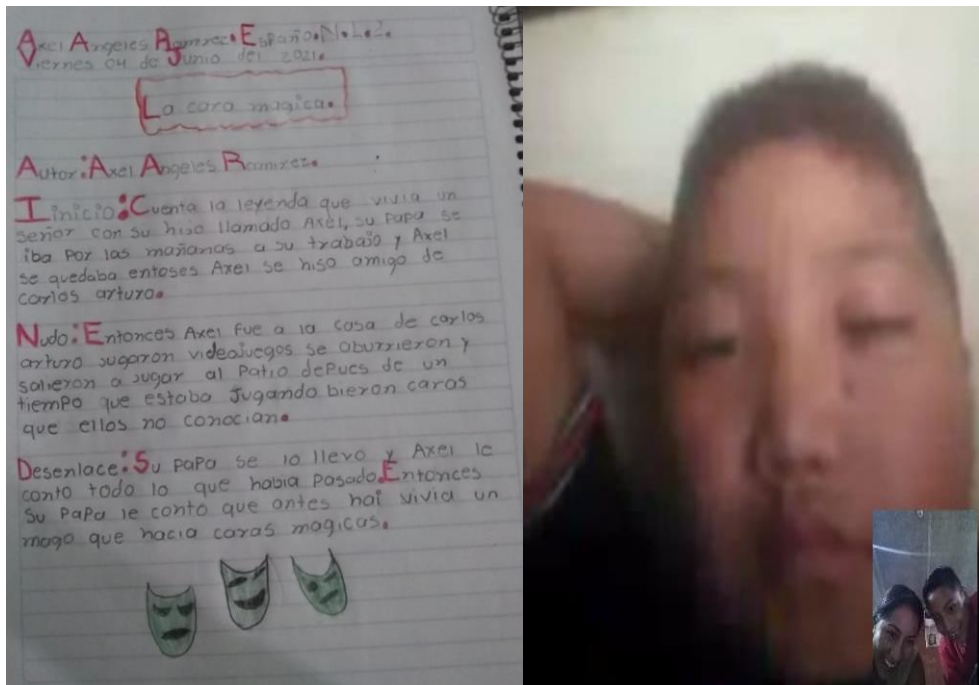 Axel Angeles Ramirez. Españo. N.L.2.
Viernes 04 de Junio del 2021.
La cara magica.
Autor: Axel Angeles Ramirez.
Iinicio: Cuenta la leyenda que vivia un
señor con su hijo llamado Axel, su papa se
iba por las mañanas a su trabajo y Axel
se quedaba entoses Axel se hiso amigo de
carlos arturo.
Nudo: Entonces Axel fue a la casa de carlos
arturo jugaron videojuegos se aburrieron y
salieron a jugar al patio depues de un
tiempo que estaba Jugando bieron caras
que ellos no conocian.
Desenlace: Su papa se lo llevo y Axel le
conto todo lo que habia pasado. Entonces
su papa le conto que antes hai vivia un
mago que hacia caras magicas.